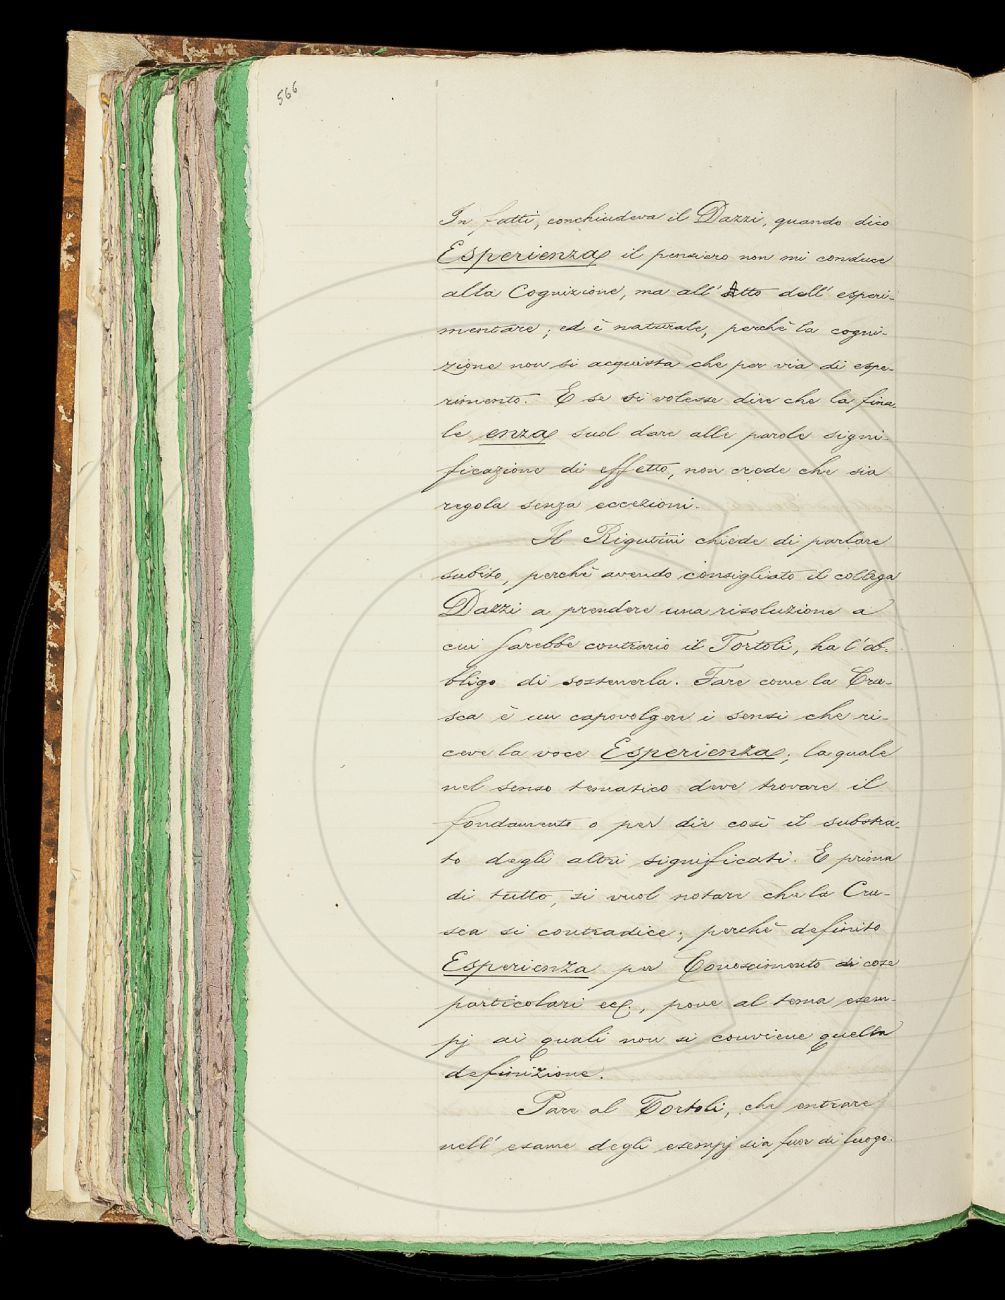 566
In fatti, conchiudeva il Dazzi, quando dico
Esperienza il pensiero non mi conduce
alla Cognizione, ma all'Atto dell'esperi-
mentare; ed è naturale, perchè la cogni-
zione non si acquista che per via di espe-
rimento. E se si volesse dire che la fina
le enza suol dare alle parole signi-
ficazione di effetto, non crede che sia
regola senza eccezioni.
Il Rigutini chiede di parlare
subito, perchè avendo consigliato il collega
Dazzi a prendere una risoluzione a
cui sarebbe contrario il Tortoli, ha l'ob-
bligo di sostenerla. Fare come la Cru-
sca è un capovolgere i sensi che ri-
ceve la voce Esperienza; la quale
nel senso tematico deve trovare il
fondamento o per dir così il substra-
to degli altri significati. E prima
di tutto, si vuol notare che la Cru-
sca si contradice; perchè definito
Esperienza per Conoscimento di cose
particolari ec., pone al tema esem-
pj ai quali non si conviene quella
definizione.
Pare al Tortoli, che entrare
nell'esame degli esempj sia fuor di luogo.